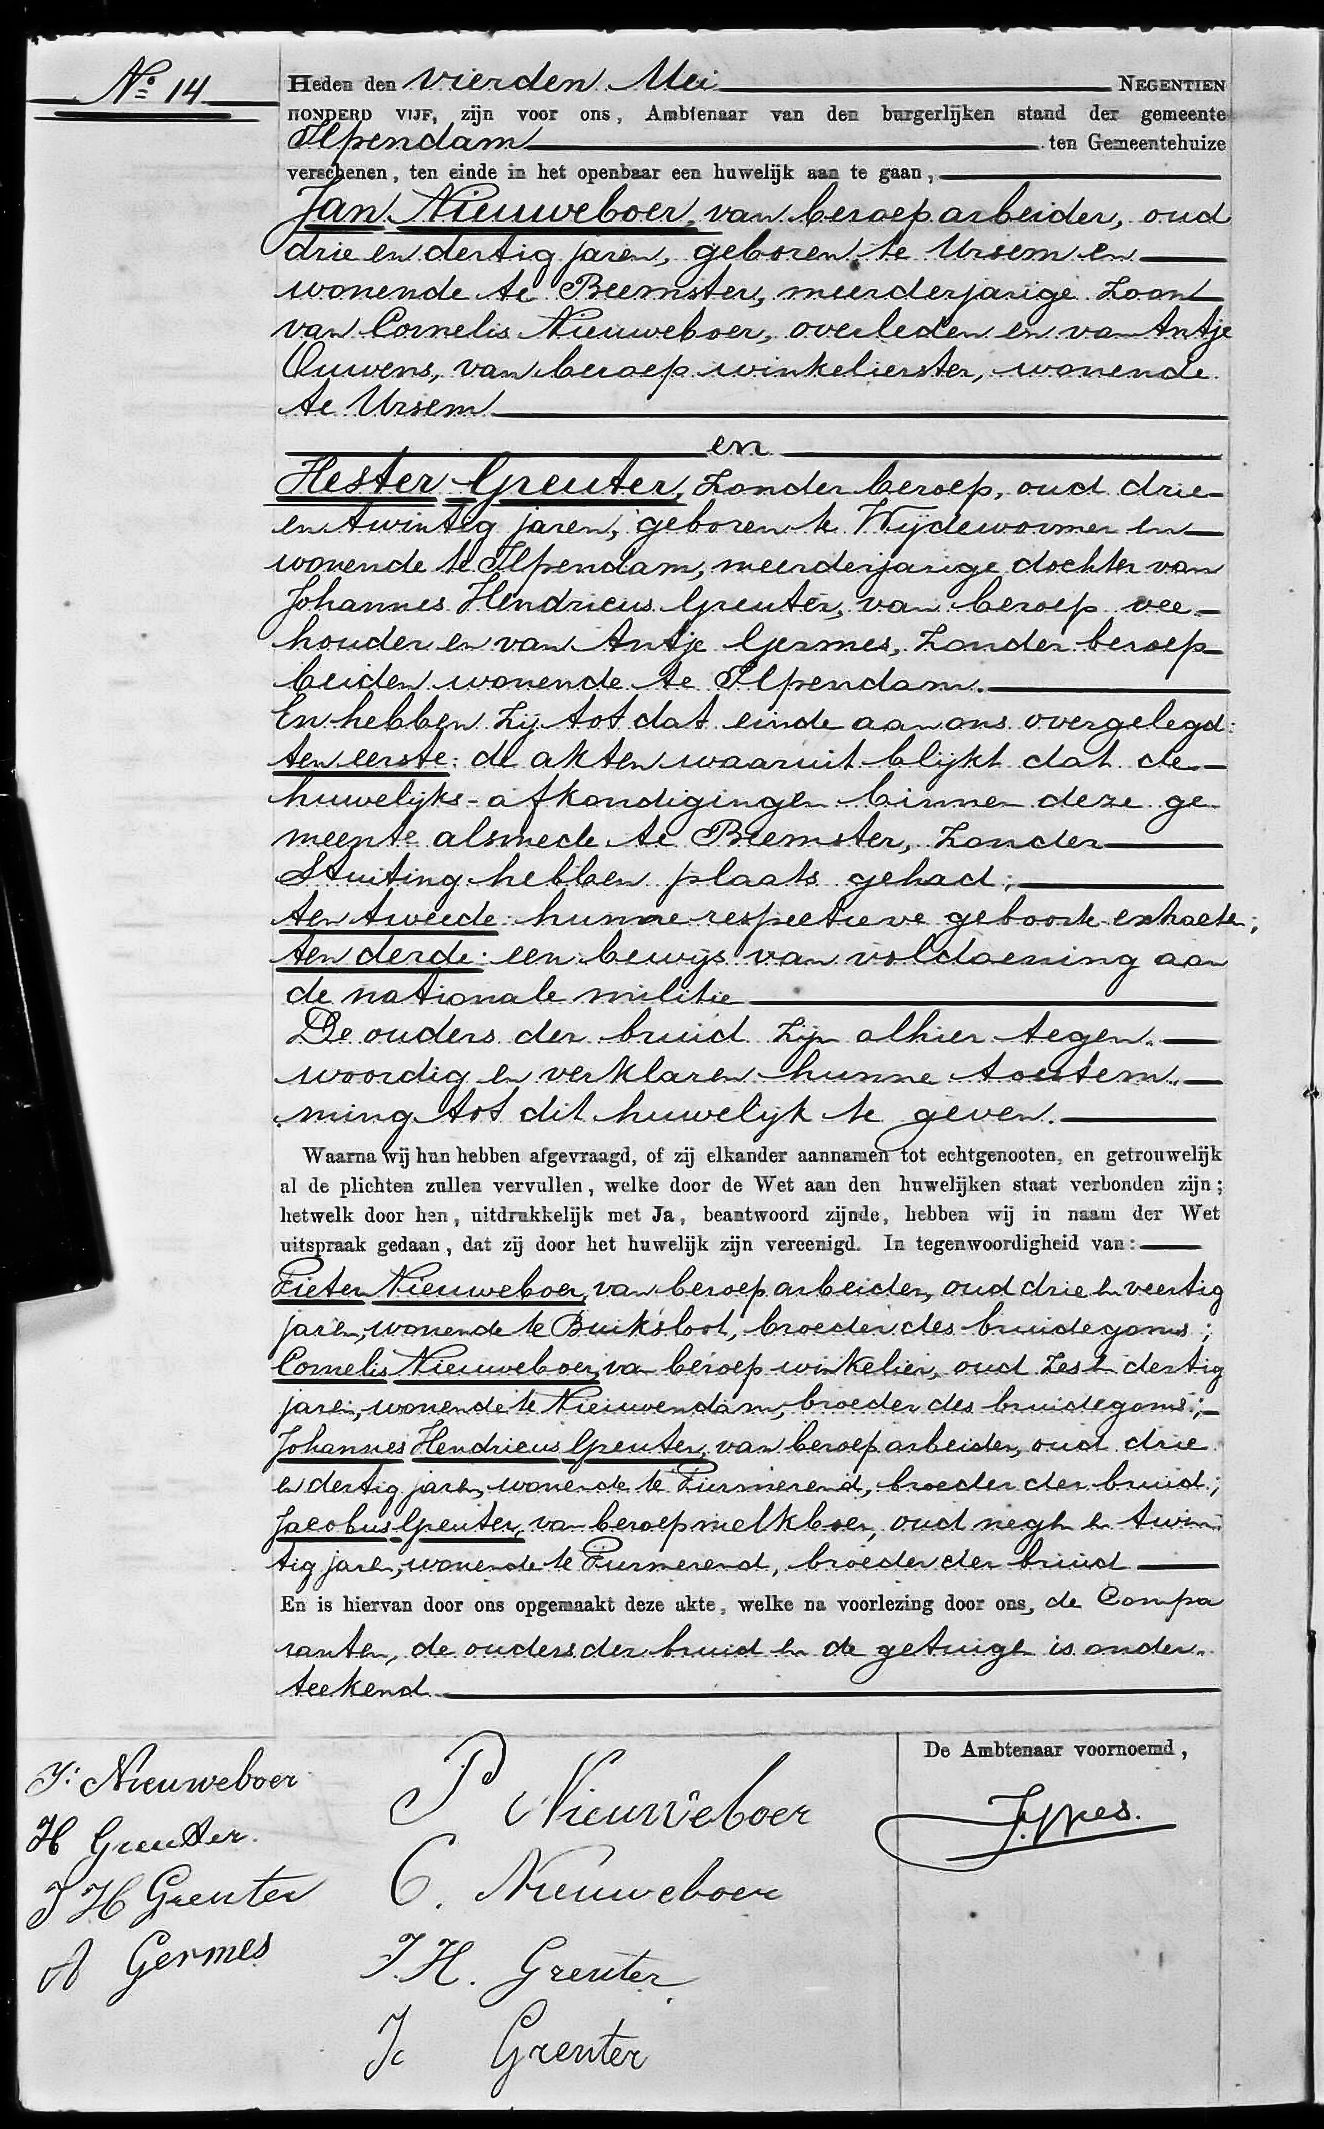 No 14
Heden den vierden Mei NEGENTIEN
HONDERD VIJF, zijn voor ons, Ambtenaar van den burgerlijken stand der gemeente
Ilpendam ten Gemeentehuize
verschenen, ten einde in het openbaar een huwelijk aan te gaan,
Jan Nieuweboer, van beroep arbeider, oud
drie en dertig jaren, geboren te Ursem en
wonende te Beemster, meerderjarige zoon
van Cornelis Nieuweboer, overleden en van Antje
Ouwens, van beroep winkelierster, wonende
te Ursem
en
Hester Greuter, zonder beroep, oud drie-
en twintig jaren, geboren te Wijdewormer en
wonende te Ilpendam, meerderjarige dochter van
Johannes Hendricus Greuter, van beroep vee-
houder en van Antje Germes, zonder beroep
beiden wonende te Ilpendam.
En hebben zij tot dat einde aan ons overgelegd:
ten eerste: de akten waaruit blijkt dat de
huwelijks-afkondigingen binnen deze ge
meente alsmede te Beemster, zonder
stuiting hebben plaats gehad;
ten tweede: hunne respectieve geboorte extracten;
ten derde: een bewijs van voldoening aan
de nationale militie
De ouders der bruid zijn alhier tegen-
woordig en verklaren hunne toestem-
ming tot dit huwelijk te geven.
Waarna wij hun hebben afgevraagd, of zij elkander aannamen tot echtgenooten, en getrouwelijk
al de plichten zullen vervullen, welke door de Wet aan den huwelijken staat verbonden zijn;
hetwelk door hen, uitdrukkelijk met Ja, beantwoord zijnde, hebben wij in naam der Wet
uitspraak gedaan, dat zij door het huwelijk zijn vereenigd. In tegenwoordigheid van:
Pieter Nieuweboer, van beroep arbeider, oud drie en veertig
jaren, wonende te Buiksloot, broeder des bruidegoms;
Cornelis Nieuweboer, van beroep winkelier, oud zes en dertig
jaren, wonende te Nieuwendam, broeder des bruidegoms;
Johannes Hendricus Greuter, van beroep arbeider, oud drie
en dertig jaren, wonende te Purmerend, broeder der bruid;
Jacobus Greuter, van beroep melkboer, oud negen en twin
tig jaren, wonende te Purmerend, broeder der bruid
En is hiervan door ons opgemaakt deze akte, welke na voorlezing door ons, de Compa
ranten, de ouders der bruid en de getuigen is onder-
teekend.
De Ambtenaar voornoemd,
J: Nieuweboer
H Greuter.
J H Greuter
A Germes
P Nieuweboer
C. Nieuweboer
J. H. Greuter
Jc Greuter